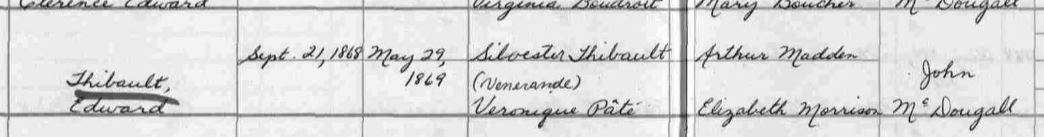 Clerence Edward Virginia Boudroit Mary Boucher Mc Dougall
Sept. 21, 1868 May 29, Silvester Thibault Arthur Madden
Thibault, 1869 (Venerande) John
Edward Veronique Pâté Elizabeth Morrison Mc Dougall